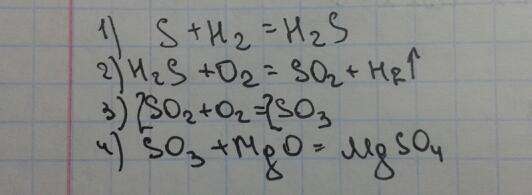 1) S + H₂ = H₂S
2) H₂S + O₂ = SO₂ + H₂↑
3) 2SO₂ + O₂ = 2SO₃
4) SO₃ + MgO = MgSO₄